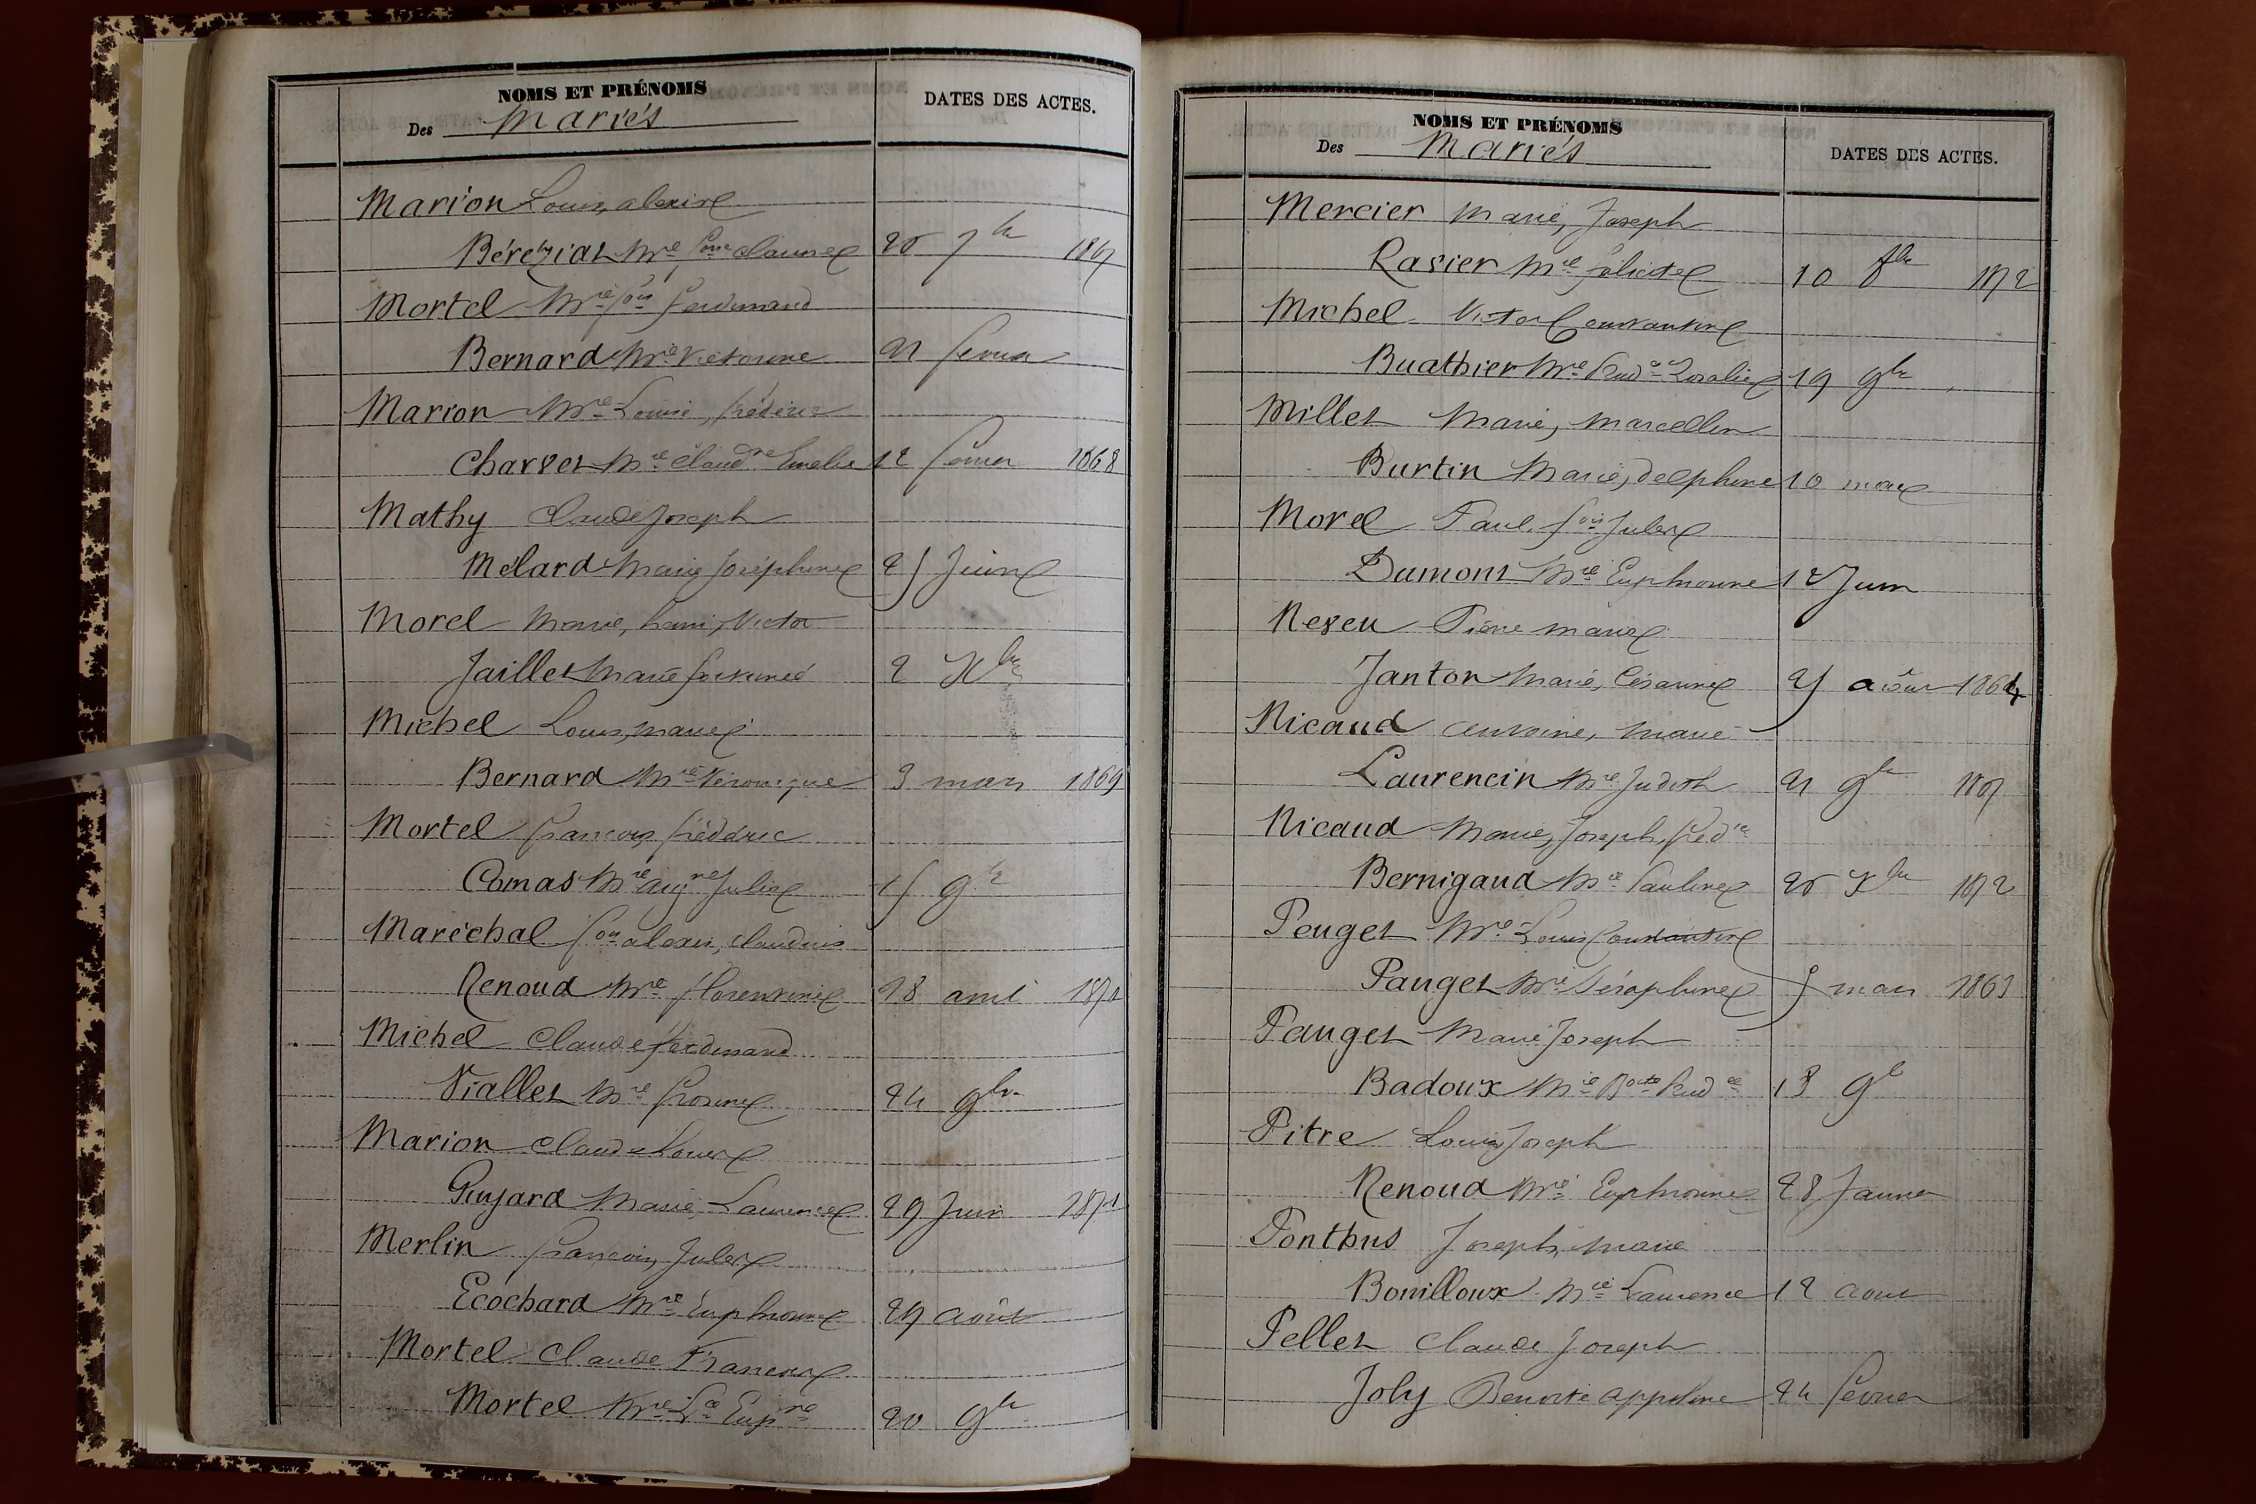 NOMS ET PRÉNOMS
Des Mariés
DATES DES ACTES.
Marion Louis, alexis
Béréziat Mie claurine 20 7bre 1867
Mortel Mie fois ferdinand
Bernard Mie Victorine 21 fevrier
Marion Mie Louis, frédéric
Charvet Mie Claudne Emelie 12 fevrier 1868
Mathy Claude Joseph
Mélard Marie Joséphine 25 Juin
Morel Marie, henri, Victor
Jaillet Marie fortunée 2 Xbre
Michel Louis, marie
Bernard Mie Véronique 3 mars 1869
Mortel francois, frédéric
Comas Mie augne Julie 9bre
Maréchal fois alexis, claudius
Renoud Mie florentine 28 avril 1870
Michel Claude ferdinand
Viallet Mie frosine 24 9bre
Marion Claude Louis
Guyard Marie, Laurence 29 Juin 1871
Merlin francois, Jules
Ecochard Mie Euphrosine 29 août
Mortel Claude Francois
Mortel Mie Lse Eupne 20 9bre
NOMS ET PRÉNOMS
Des Mariés
DATES DES ACTES.
Mercier Marie, Joseph
Rasier Mie félicité 10 8bre 1872
Michel Victor Constantin
Buathier Mie Prudce Rosalie 19 9bre
Millet Marie, Marcellin
Burtin Marie, Delphine 10 mai
Morel Paul fois Jules
Dumont Mie Euphrosine 12 Juin
Neveu Pierre marie
Janton Marie, Césarine 25 août 1864
Nicaud antoine, marie
Laurencin Mie Judith 21 9bre 1867
Nicaud Marie, Joseph, fredric
Bernigaud Mie Pauline 20 Xbre 1872
Peuget Mie Louis Constantin
Pauget Mie Séraphine 5 mars 1863
Pauget Marie Joseph
Badoux Mie Boite Prudce 18 9b
Pitre Louis, Joseph
Renoud Mie Euphrosine 28 Janvier
Ponthus Joseph, marie
Bouilloux Mie Laurence 12 aout
Pellet Claude Joseph
Joly Benoite appoline 24 fevrier